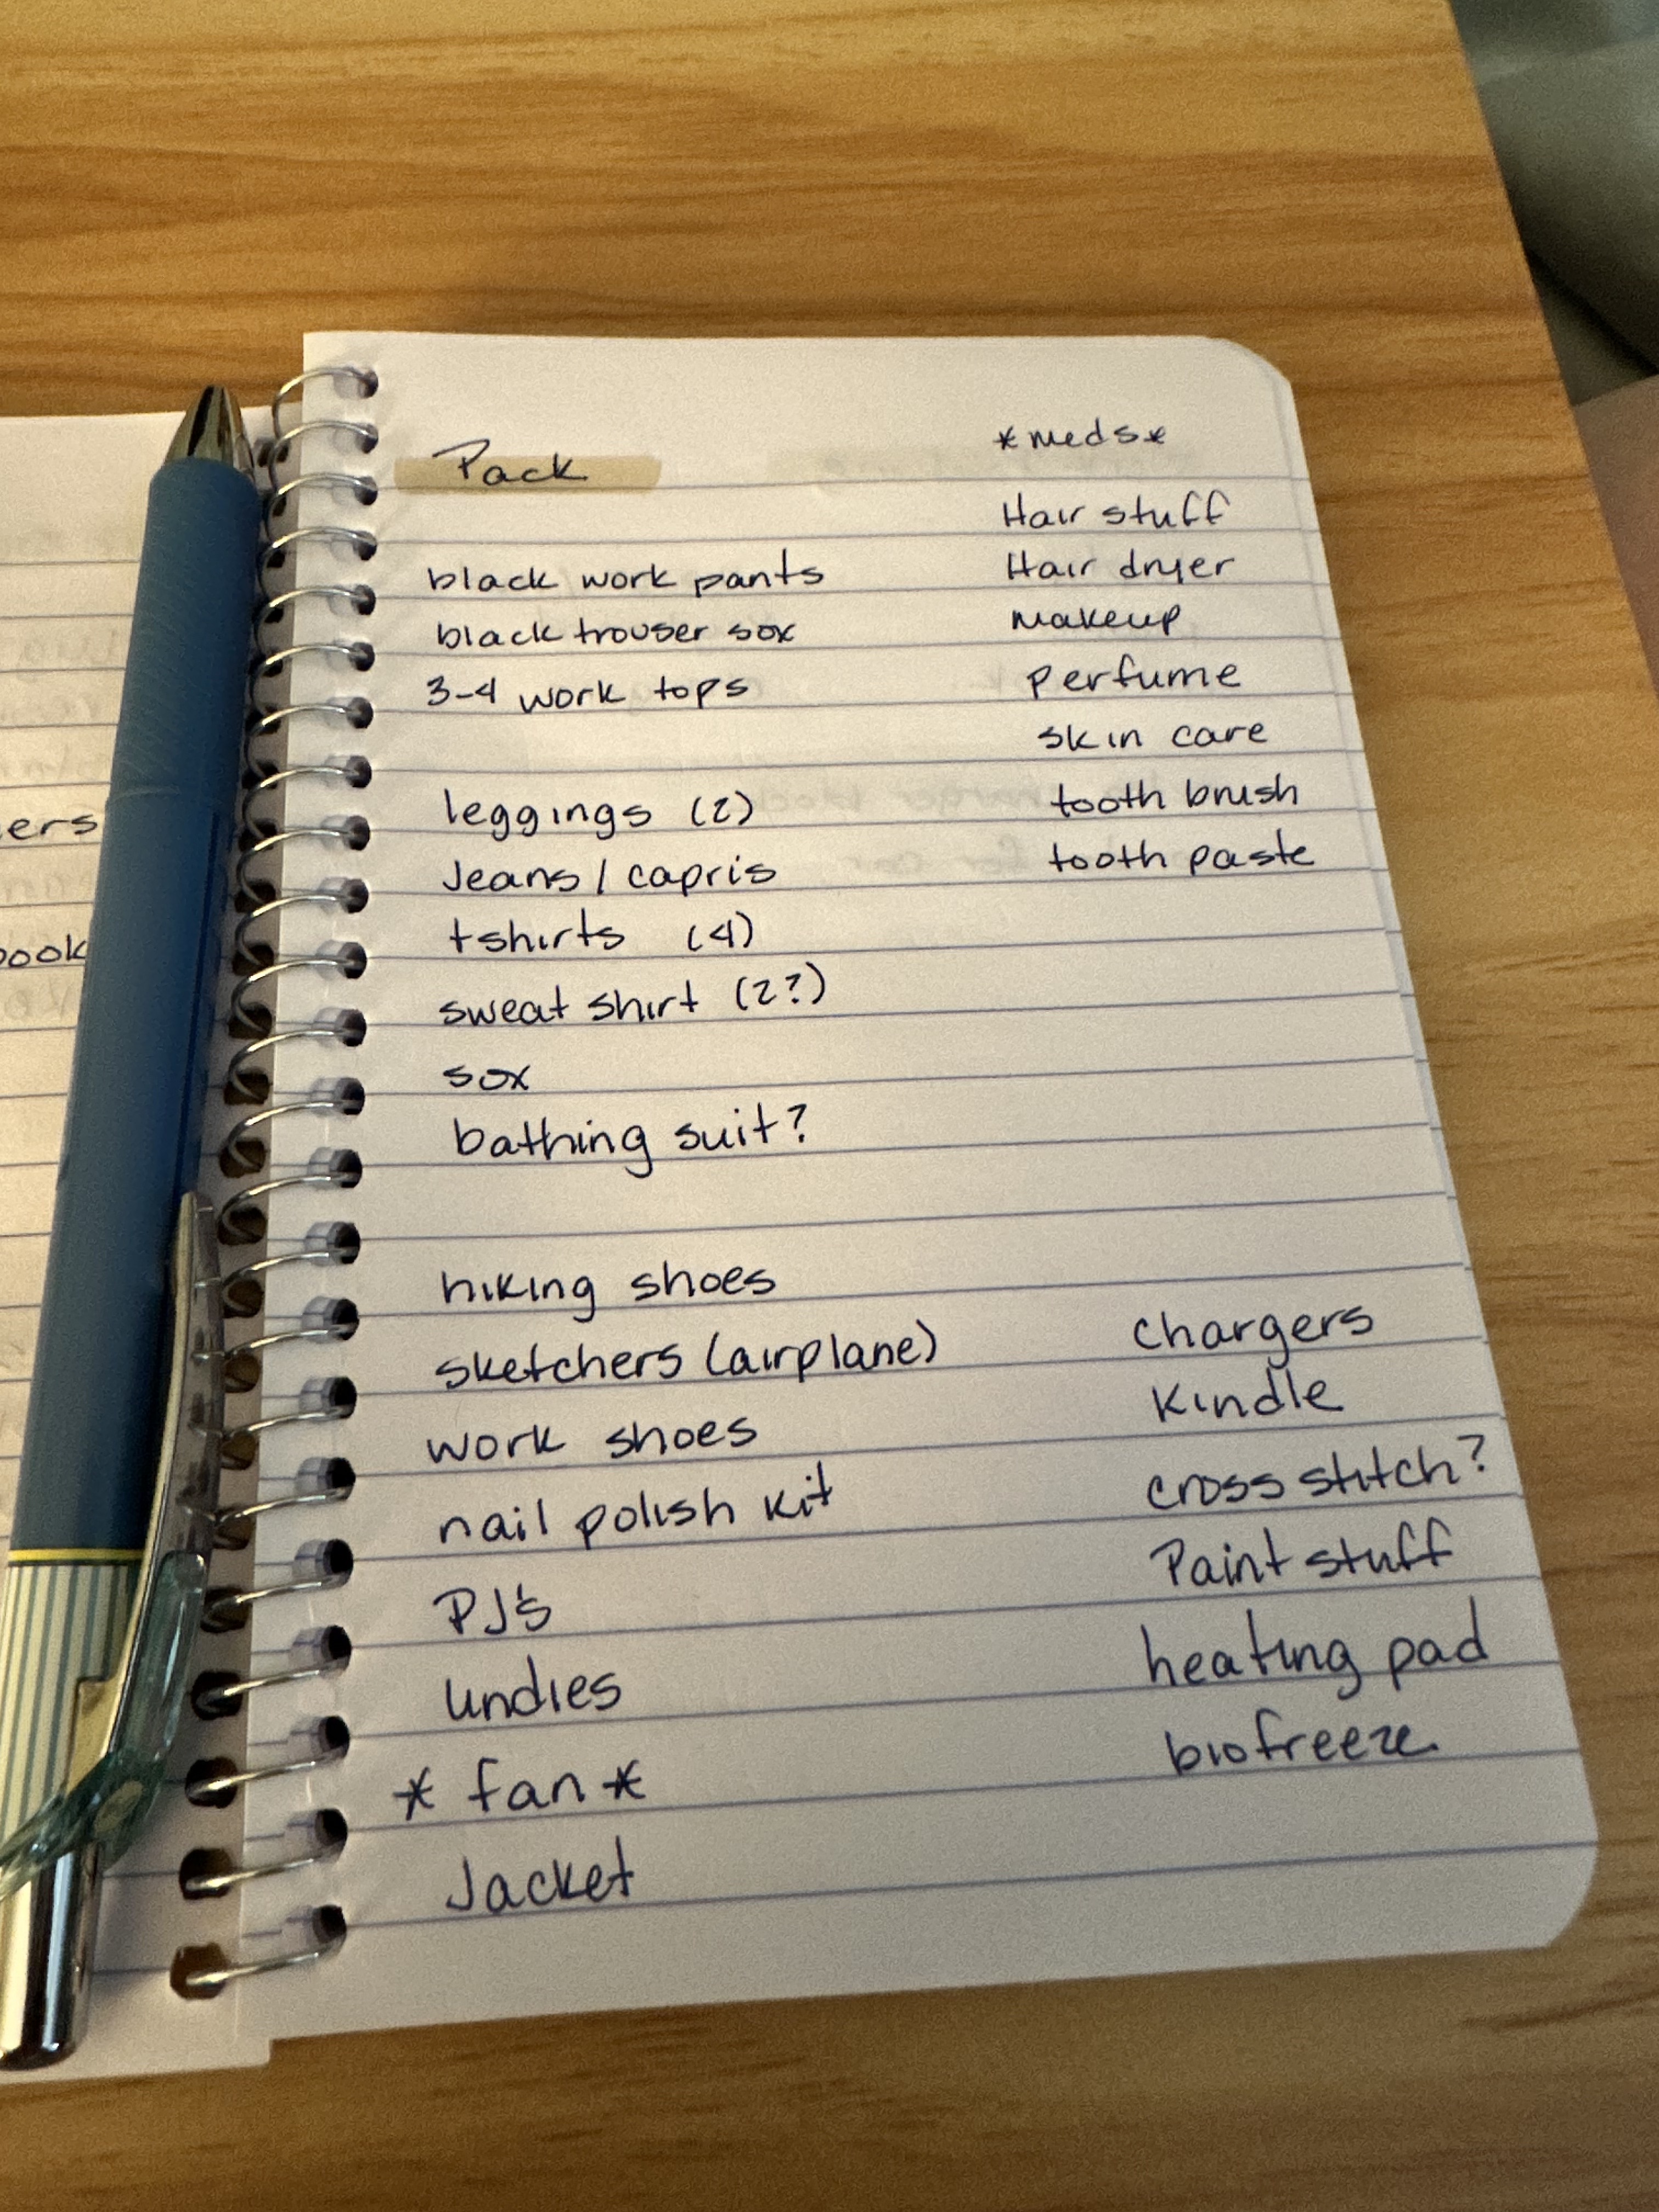 ers
ook
Pack
black work pants
black trouser sox
3-4 work tops
leggings (2)
Jeans / capris
tshirts (4)
sweat shirt (2?)
sox
bathing suit?
hiking shoes
sketchers (airplane)
work shoes
nail polish kit
PJ's
undies
* fan *
Jacket
*meds*
Hair stuff
Hair dryer
makeup
perfume
skin care
tooth brush
tooth paste
chargers
Kindle
cross stitch?
Paint stuff
heating pad
biofreeze